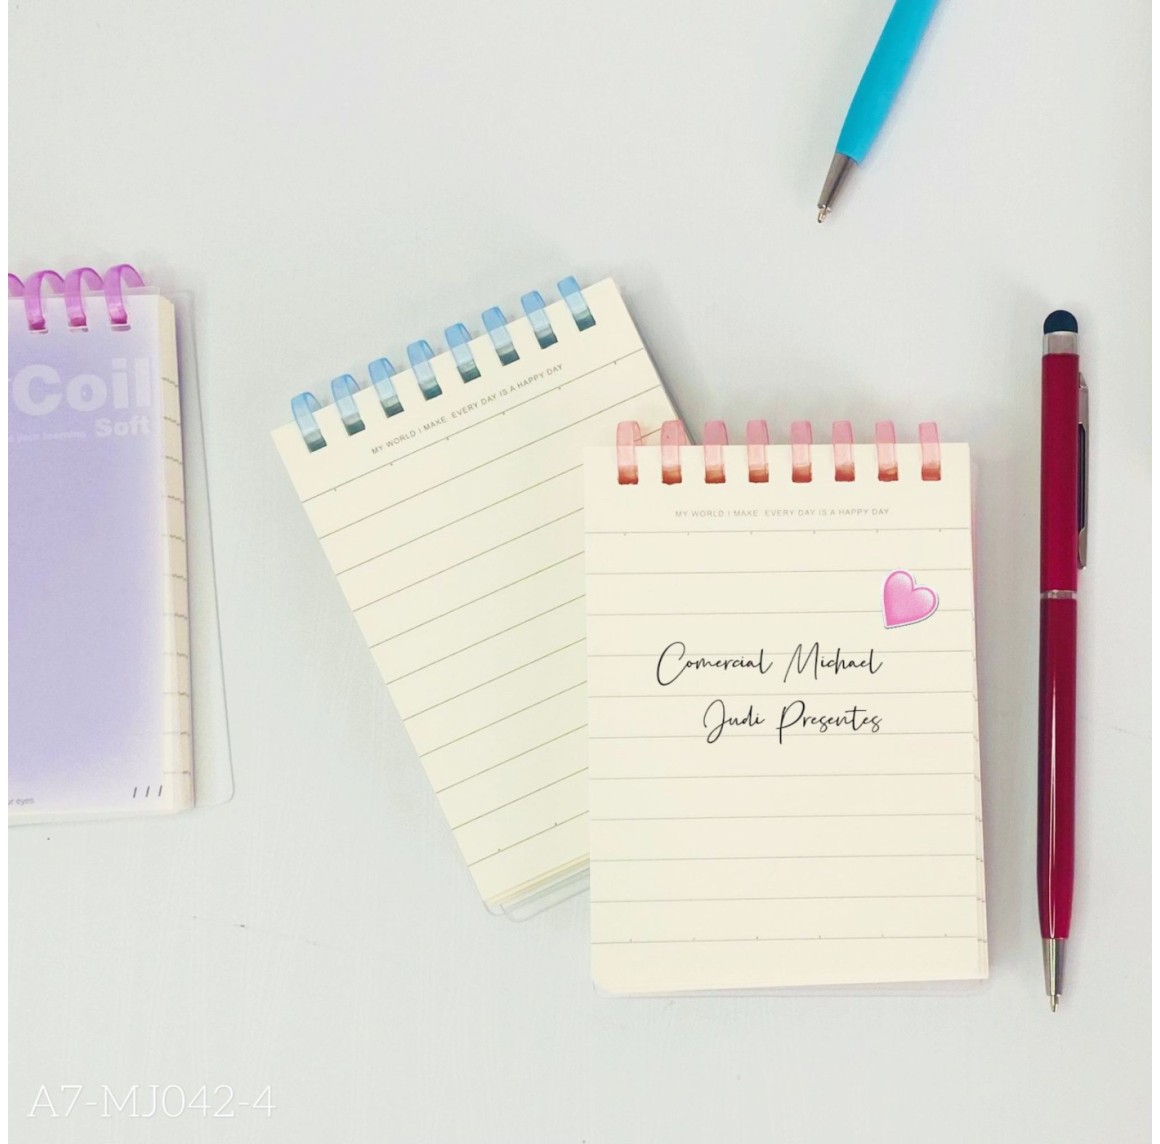 Coil
Soft
MY WORLD I MAKE EVERY DAY IS A HAPPY DAY
MY WORLD I MAKE EVERY DAY IS A HAPPY DAY
Comercial Michael
Judi Presentes
r eyes
A7-MJ042-4